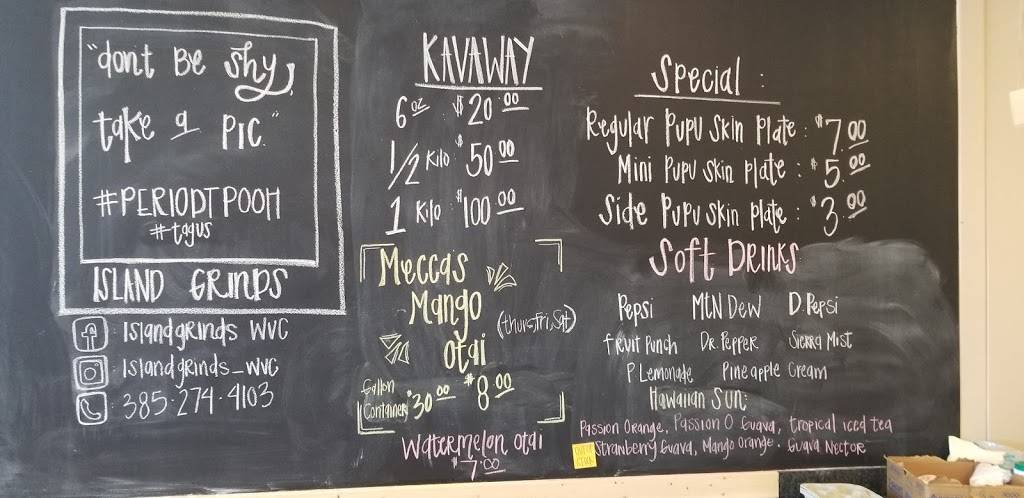 "don't Be shy,
take a PIC."
#PERIODTPOOH
#tagus
ISLAND GRINDS
: Islandgrinds WVC
: Islandgrinds_WVC
: 385-274-4103
KAVAWAY
6 oz $20.00
1/2 Kilo $50.00
1 Kilo $100.00
Meccas
Mango
otai
(thurs, Fri, Sat)
Gallon
Containers $30.00 $8.00
Watermelon otai
$7.00
Special :
Regular Pupu Skin Plate : $7.00
Mini Pupu Skin Plate : $5.00
Side Pupu Skin Plate : $3.00
Soft Drinks
Pepsi MTN Dew D. Pepsi
fruit Punch Dr. Pepper Sierra Mist
P Lemonade Pineapple Cream
Hawaiian Sun:
Passion Orange, Passion O Guava, tropical iced tea
Stranberry Guava, Mango Orange. Guava Nector